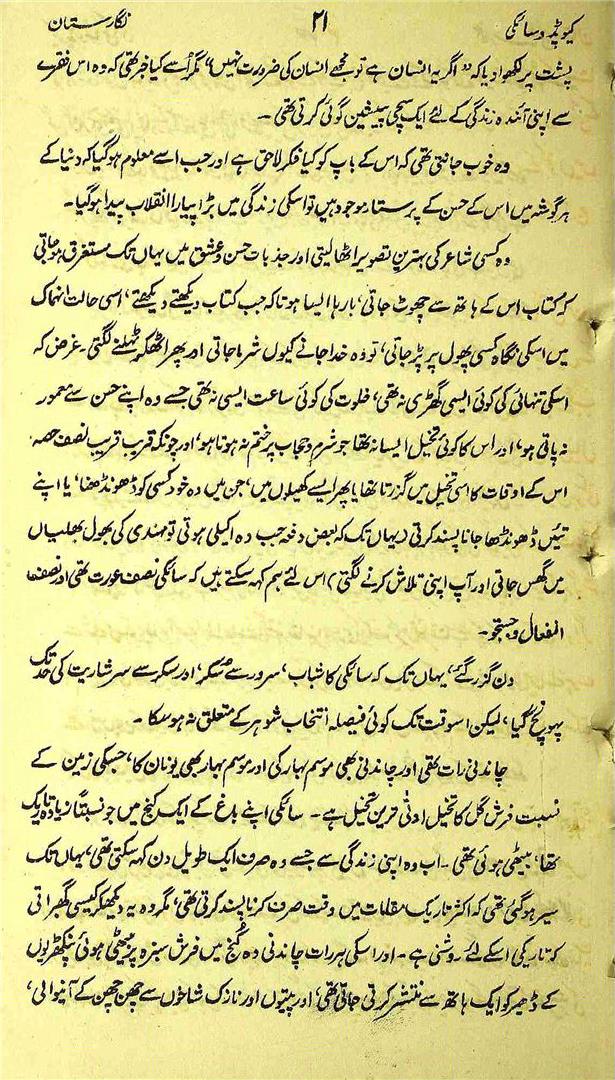 کیوپڈ و سائکی ۲۱ نگارستان
پشت پر لکھوا دیا کہ "اگر یہ انسان ہے تو مجھے انسان کی ضرورت نہیں" مگر اُسے کیا خبر تھی کہ وہ اس فقرے
سے اپنی آئندہ زندگی کے لئے ایک سچی پیشین گوئی کرتی تھی۔
وہ خوب جانتی تھی کہ اس کے باپ کو کیا فکر لاحق ہے اور جب اسے معلوم ہوگیا کہ دنیا کے
ہر گوشہ میں اس کے حسن کے پرستار موجود ہیں تو اسکی زندگی میں بڑا پیارا انقلاب پیدا ہوگیا۔
وہ کسی شاعر کی بہترین تصویر اٹھا لیتی اور جذبات حسن و عشق میں یہاں تک مستغرق ہو جاتی
کہ کتاب اس کے ہاتھ سے چھوٹ جاتی، بارہا ایسا ہوتا کہ جب کتاب دیکھتے دیکھتے، اسی حالت انہماک
میں اسکی نگاہ کسی پھول پر پڑ جاتی، تو وہ خدا جانے کیوں شرما جاتی اور پھر اٹھکر ٹہلنے لگتی۔ غرض کہ
اسکی تنہائی کی کوئی ایسی گھڑی نہ تھی، خلوت کی کوئی ساعت ایسی نہ تھی جسے وہ اپنے حسن سے معمور
نہ پاتی ہو، اور اس کا کوئی تخیل ایسا نہ تھا جو شرم و حجاب پر ختم نہ ہوتا ہو، اور چونکہ قریب قریب نصف حصہ
اس کے اوقات کا اسی تخیل میں گزرتا تھا یا پھر ایسے کھیلوں میں، جن میں وہ خود کسی کو ڈھونڈھنا، یا اپنے
تئیں ڈھونڈھا جانا پسند کرتی (یہاں تک کہ بعض دفعہ جب وہ اکیلی ہوتی تو مہندی کی بھول بھلیاں
میں گھس جاتی اور آپ اپنی تلاش کرنے لگتی) اس لئے ہم کہہ سکتے ہیں کہ سائکی نصف عورت تھی اور نصفہا
انفعال و جستجو۔
دن گزر گئے، یہاں تک کہ سائکی کا شباب، سرور سے سُکر، اور سکر سے سرشاریت کی حد تک
پہونچ گیا، لیکن اسوقت تک کوئی فیصلہ انتخاب شوہر کے متعلق نہ ہوسکا۔
چاندنی رات تھی اور چاندنی بھی موسم بہار کی اور موسم بہار بھی یونان کا، جسکی زمین کے
نسبت فرش گل کا تخیل ادنٰی ترین تخیل ہے۔ سائکی اپنے باغ کے ایک کنج میں جو نسبتاً زیادہ تاریک
تھا، بیٹھی ہوئی تھی۔ اب وہ اپنی زندگی سے جسے وہ صرف ایک طویل دن کہہ سکتی تھی، یہاں تک
سیر ہوگئی تھی کہ اکثر تاریک مقامات میں وقت صرف کرنا پسند کرتی تھی، مگر وہ یہ دیکھکر کیسی گھبراتی
کہ تاریکی اسکے لئے روشنی ہے۔ اور اسکی ہر رات چاندنی وہ کُنج میں فرش سبزہ پر بیٹھی ہوئی پنکھڑیوں
کے ڈھیر کو ایک ہاتھ سے منتشر کرتی جاتی تھی، اور پتیوں اور نازک شاخوں سے چھن چھن کے آنیوالی،